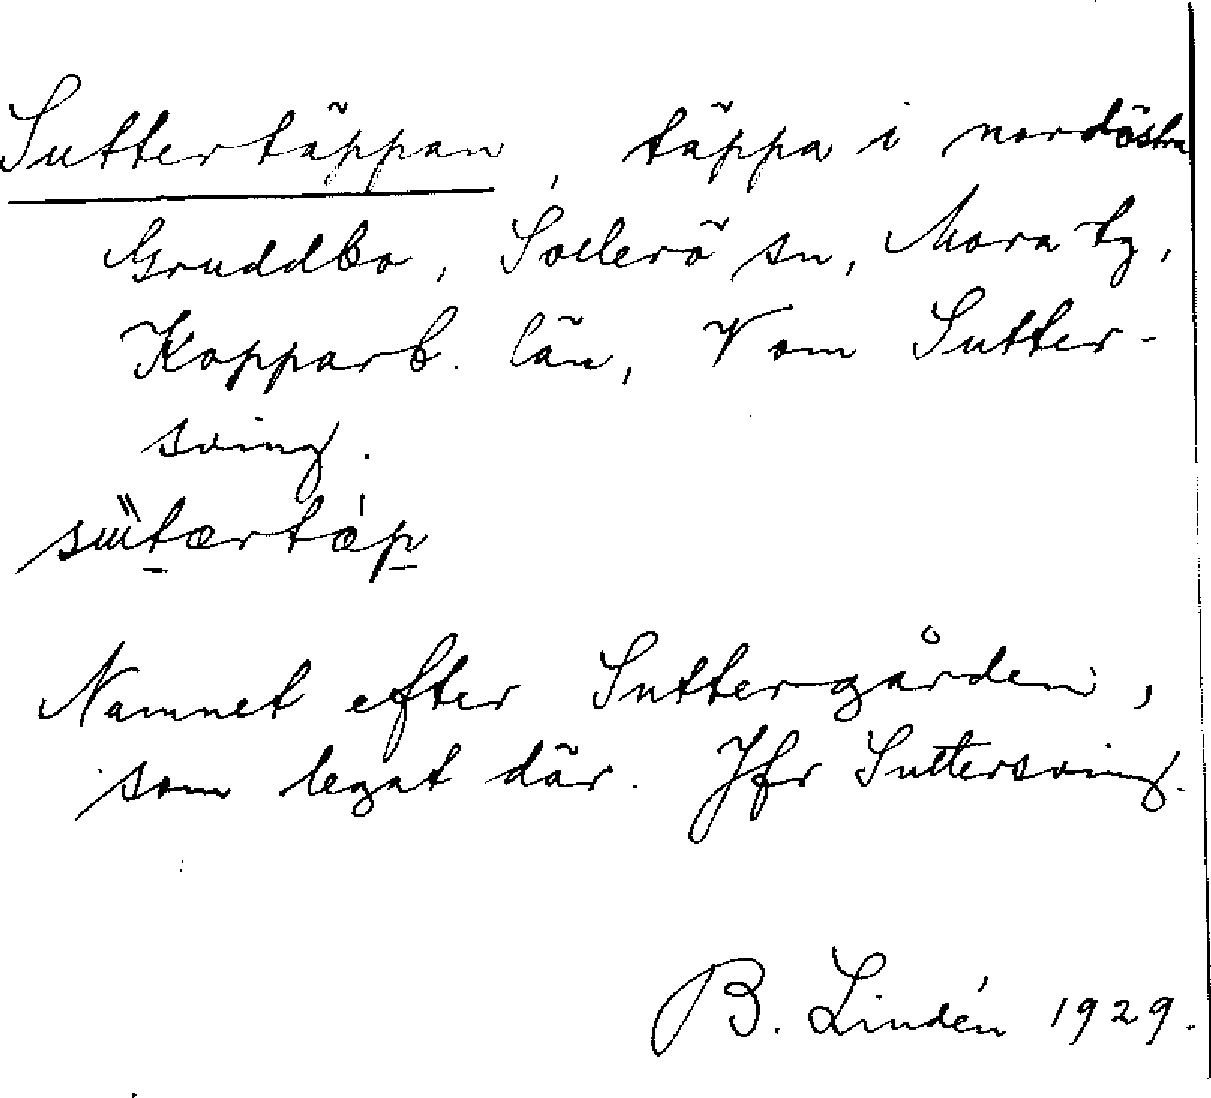 Suttertäppan, täppa i nordöstra
Gruddbo, Sollerö sn, Mora tg,
Kopparb. län, V om Sutter-
sving.
Namnet efter Suttergården,
som legat där. Jfr Suttersving.
B. Lindén 1929.